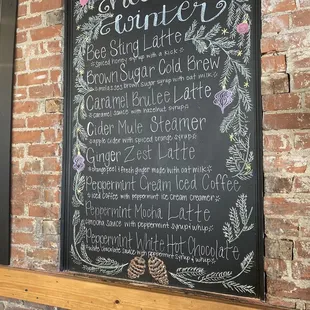 Winter
Bee Sting Latte
spiced honey syrup with a kick
Brown Sugar Cold Brew
molasses brown sugar syrup with oat milk
Caramel Brulee Latte
caramel sauce with hazelnut syrup
Cider Mule Steamer
apple cider with spiced orange syrup
Ginger Zest Latte
orange peel & fresh ginger made with oat milk
Peppermint Cream Iced Coffee
iced coffee with peppermint ice cream creamer
Peppermint Mocha Latte
mocha sauce with peppermint syrup
Peppermint White Hot Chocolate
white chocolate sauce & peppermint syrup & whip